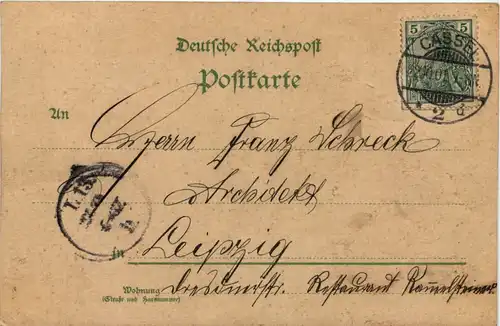 Deutsche Reichspost
Postkarte
5 5
CASSEL
* 2 d
An
Herrn Franz Schreck
Architekt
in Leipzig
Wohnung
(Straße und Hausnummer)
Dresdnerstr. Restaurant